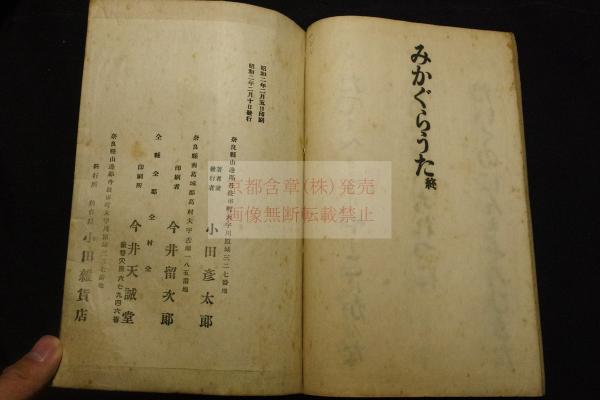 みかぐらうた 終
昭和二年二月五日印刷
昭和二年二月十日發行
奈良縣山邊郡丹波市町大字川原城三二七番地
著者兼發行者 小田彦太郎
奈良縣南葛城郡葛村大字古瀬一八五番地
印刷者 今井留次郎
全縣全郡全村全
印刷所 今井天誠堂
振替大阪六七九四六番
奈良縣山邊郡丹波市町大字川原城三二七番地
發行所 小田雜貨店
京都含章(株)発売
画像無断転載禁止